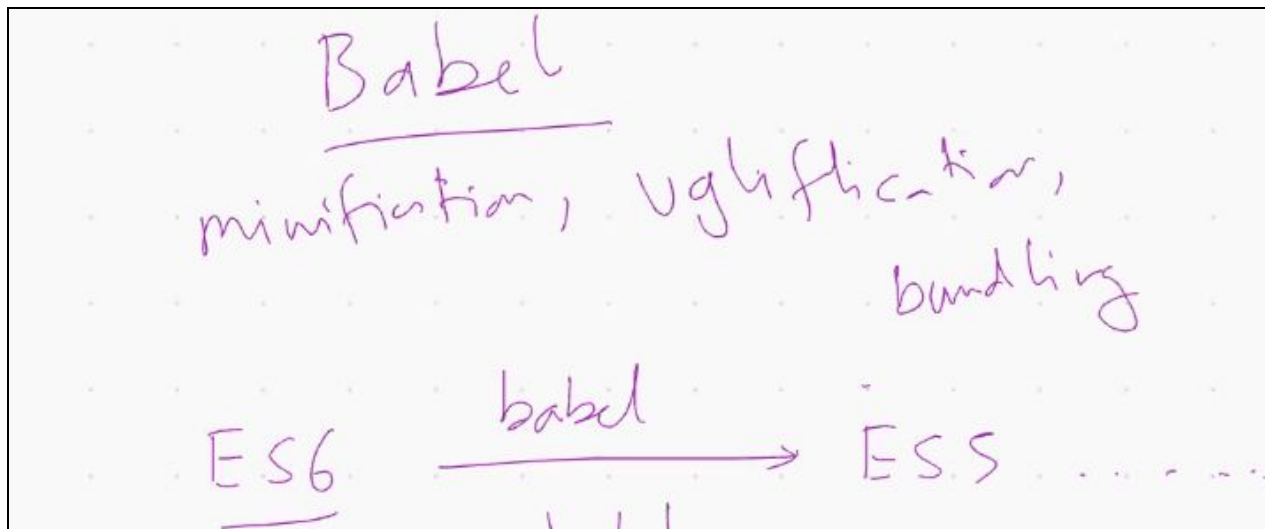 Babel
minification, uglification,
bundling
babel
ES6 → ES5 ......